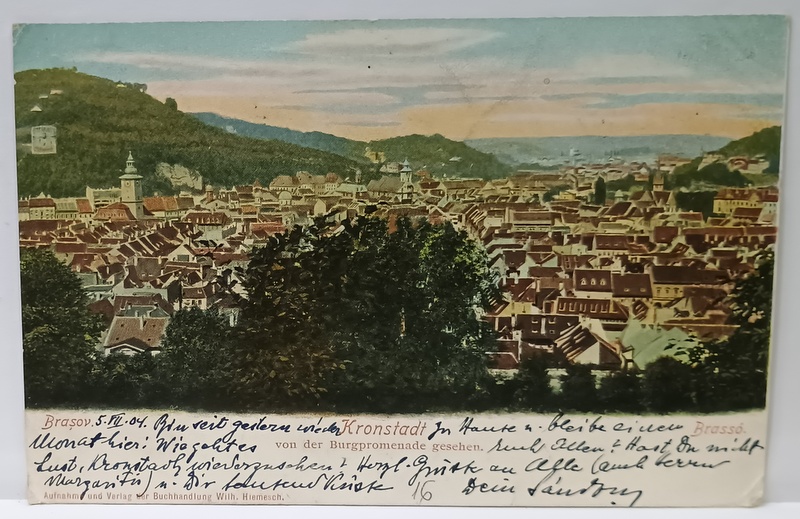 Brașov. 5.VII.04. Bin seit gestern wieder Kronstadt zu Hause u. bleibe einen Brassó.
Monat hier! Wie geht es von der Burgpromenade gesehen. Euch Allen? Hast Du nicht
Lust, Kronstadt wiederzusehen? Herzl. Grüße an Alle (auch Herrn
Margaritu) u. Dir tausend Küsse
16 Dein Sándor
Aufnahme und Verlag der Buchhandlung Wilh. Hiemesch.